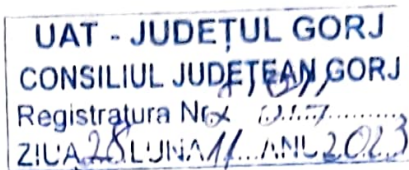 UAT - JUDEȚUL GORJ
CONSILIUL JUDEȚEAN GORJ
Registratura Nr.
ZIUA 28 LUNA 11 ANUL 2023